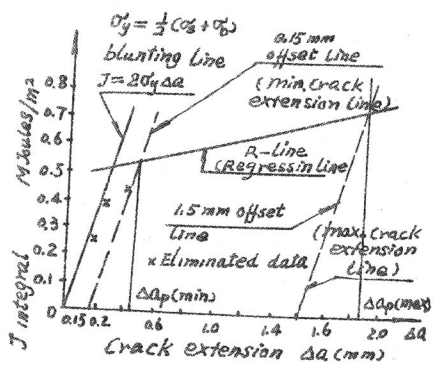 σy = ½(σs + σb)
blunting line
J = 2σyΔa
0.15 mm
offset Line
(min, Crack
extension line)
R-line
(Regressin line
1.5 mm offset
Line
(max, Crack
extension
line)
× Eliminated data
Δap(min)
Δap(max)
J integral MJoules/m2
0.8
0.7
0.6
0.5
0.4
0.3
0.2
0.1
0
0.15 0.2 0.6 1.0 1.2 1.6 2.0 Δa
Crack extension Δa (mm)